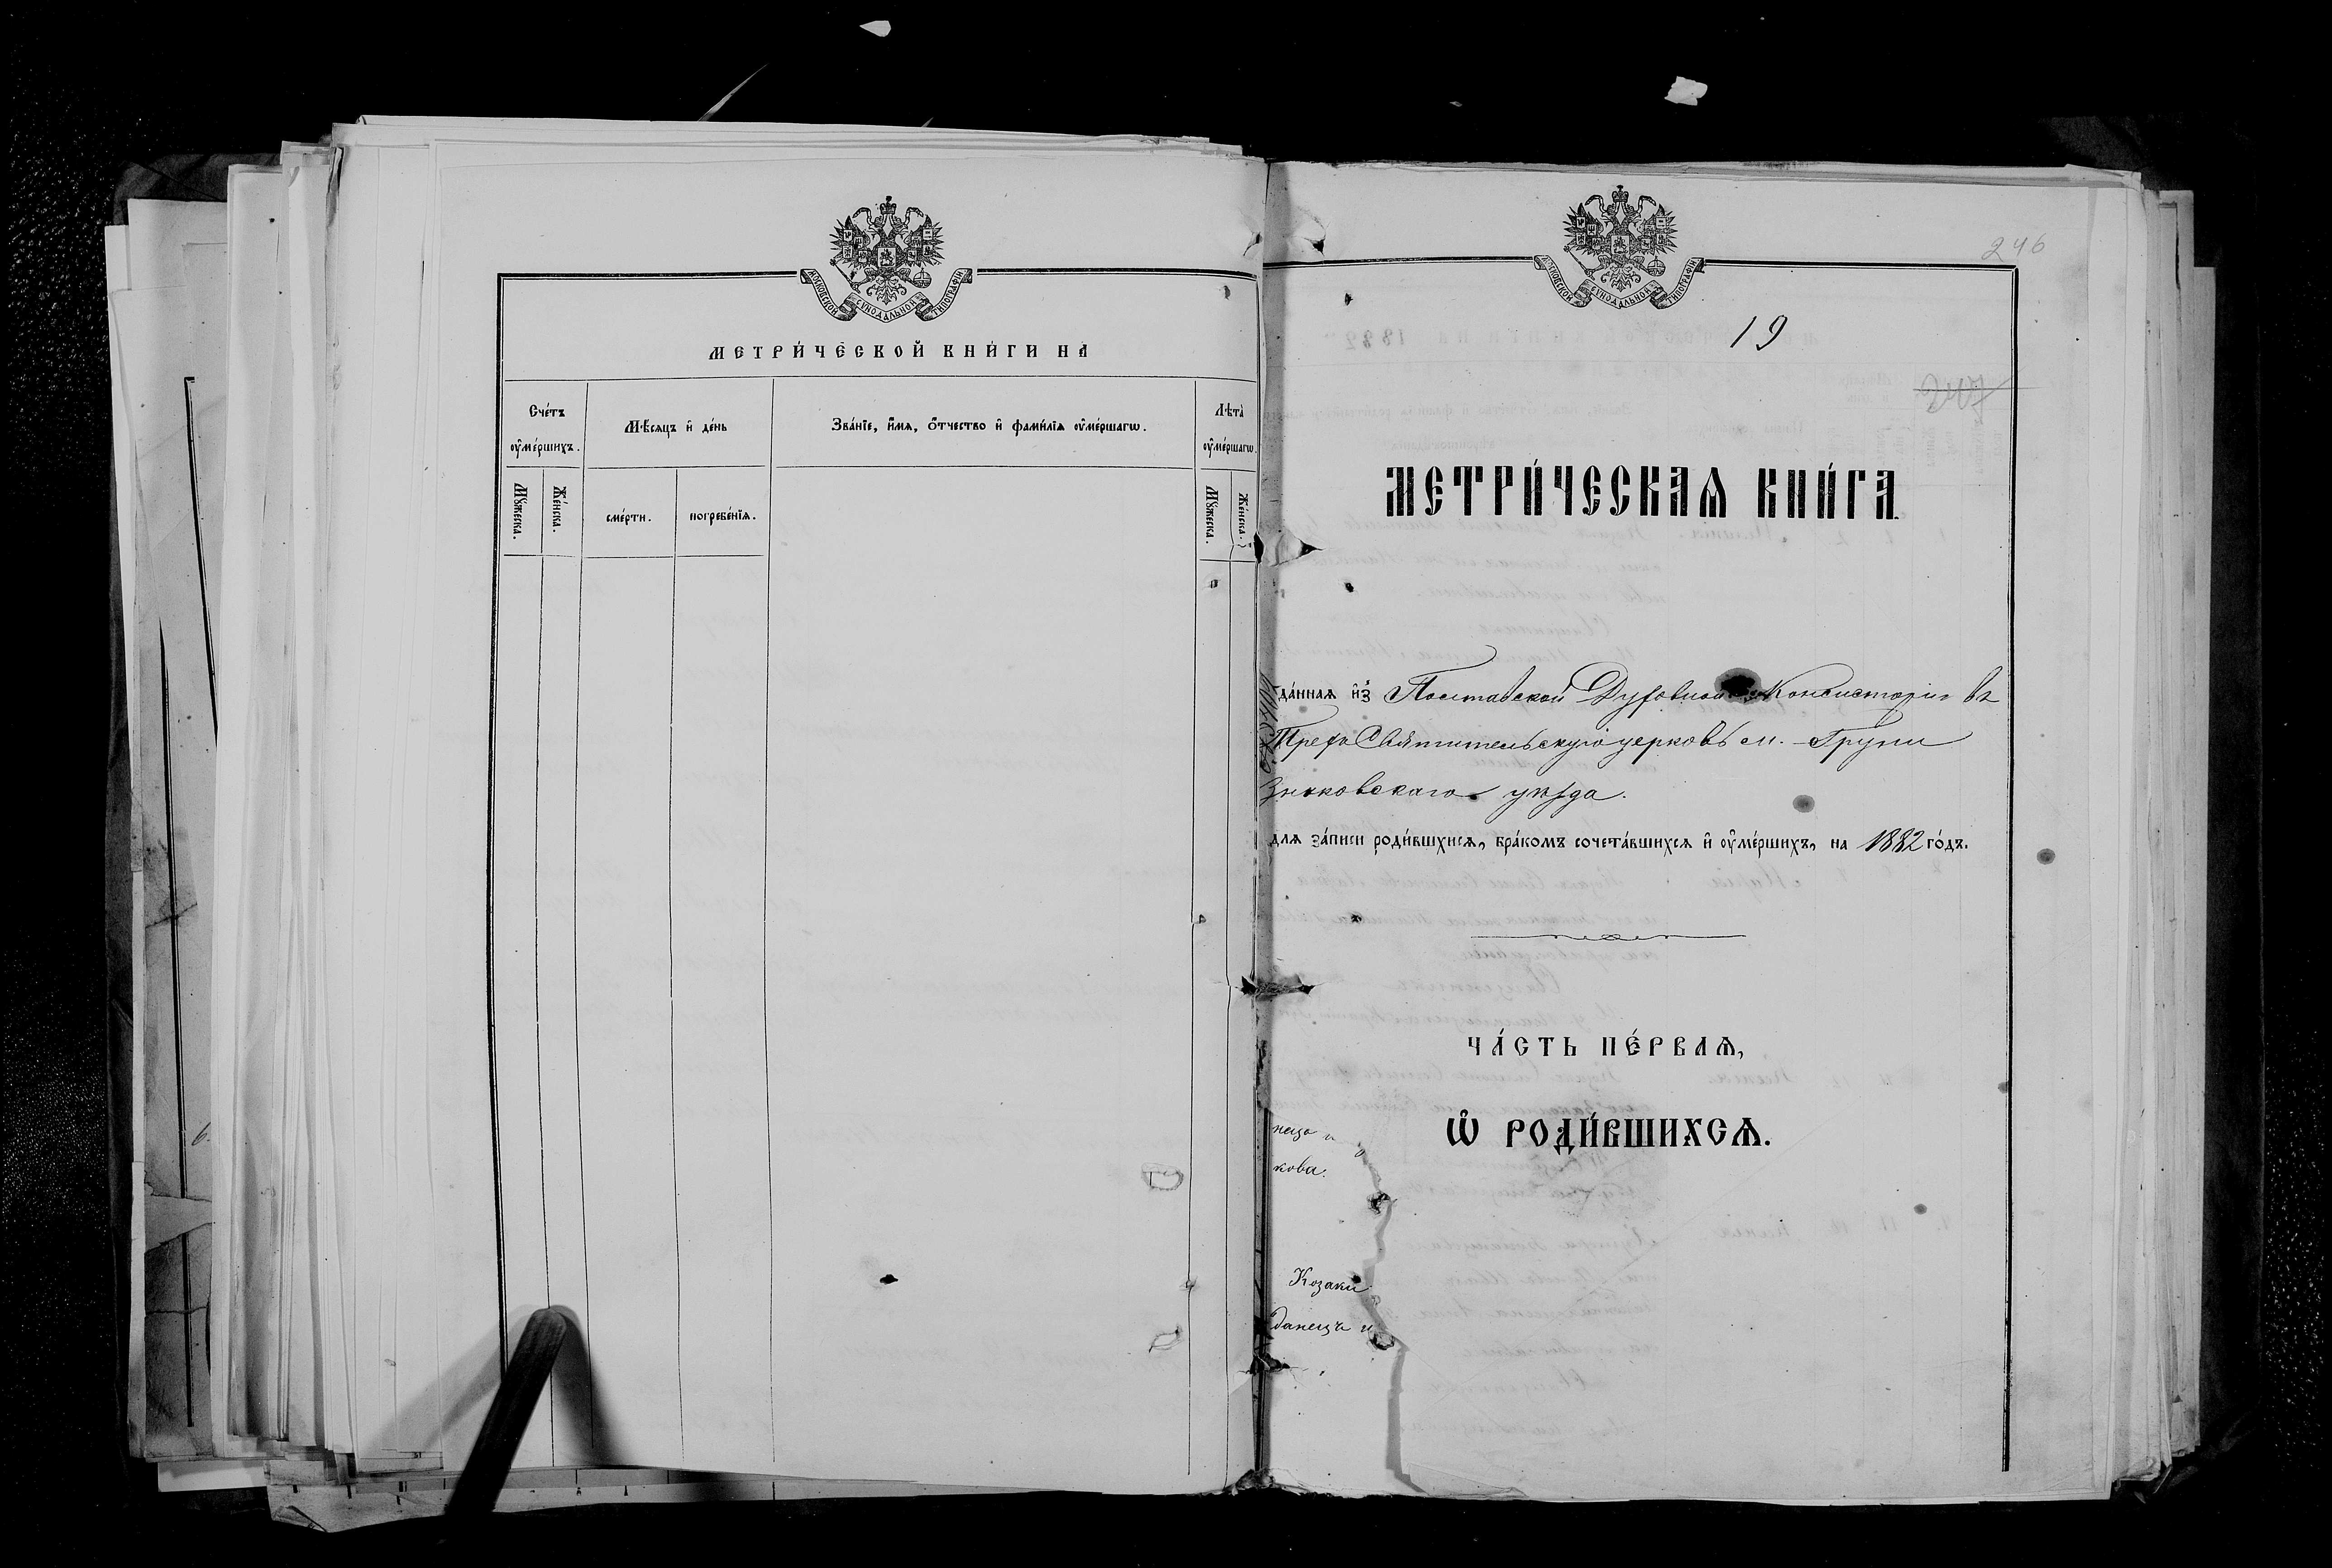 МОСКОВСКОЙ СѴНОДАЛЬНОЙ ТИПОГРАФІИ
МЕТРИ́ЧЕСКОЙ КНИ́ГИ НА
Сче́тъ ᲂу҆ме́ршихъ.
Мѣ́сяцъ и҆ де́нь
Зва́нїе, и҆́мѧ, ѻ҆́тчество и҆ фами́лїѧ ᲂу҆ме́ршагѡ.
Лѣта̀ ᲂу҆ме́ршагѡ.
Мꙋ́жеска.
Же́нска.
сме́рти.
погребе́нїѧ.
Мꙋ́жеска.
Же́нска.
МОСКОВСКОЙ СѴНОДАЛЬНОЙ ТИПОГРАФІИ
246
19
247
МЕТРИ́ЧЕСКАѦ КНИ́ГА
да́ннаѧ и҆з̾ Полтавской Духовной Консисторіи въ
Трехъ Святительскую церковь м. Груни
Зиньковскаго уѣзда.
для за́писи роди́вшихсѧ, бра́комъ сочета́вшихсѧ и҆ ᲂу҆ме́ршихъ, на 1882 го́дъ.
ЧА́СТЬ ПЕ́РВАѦ,
Ѡ҆ РОДИ́ВШИХСѦ.
кова.
Козаки
данецъ и